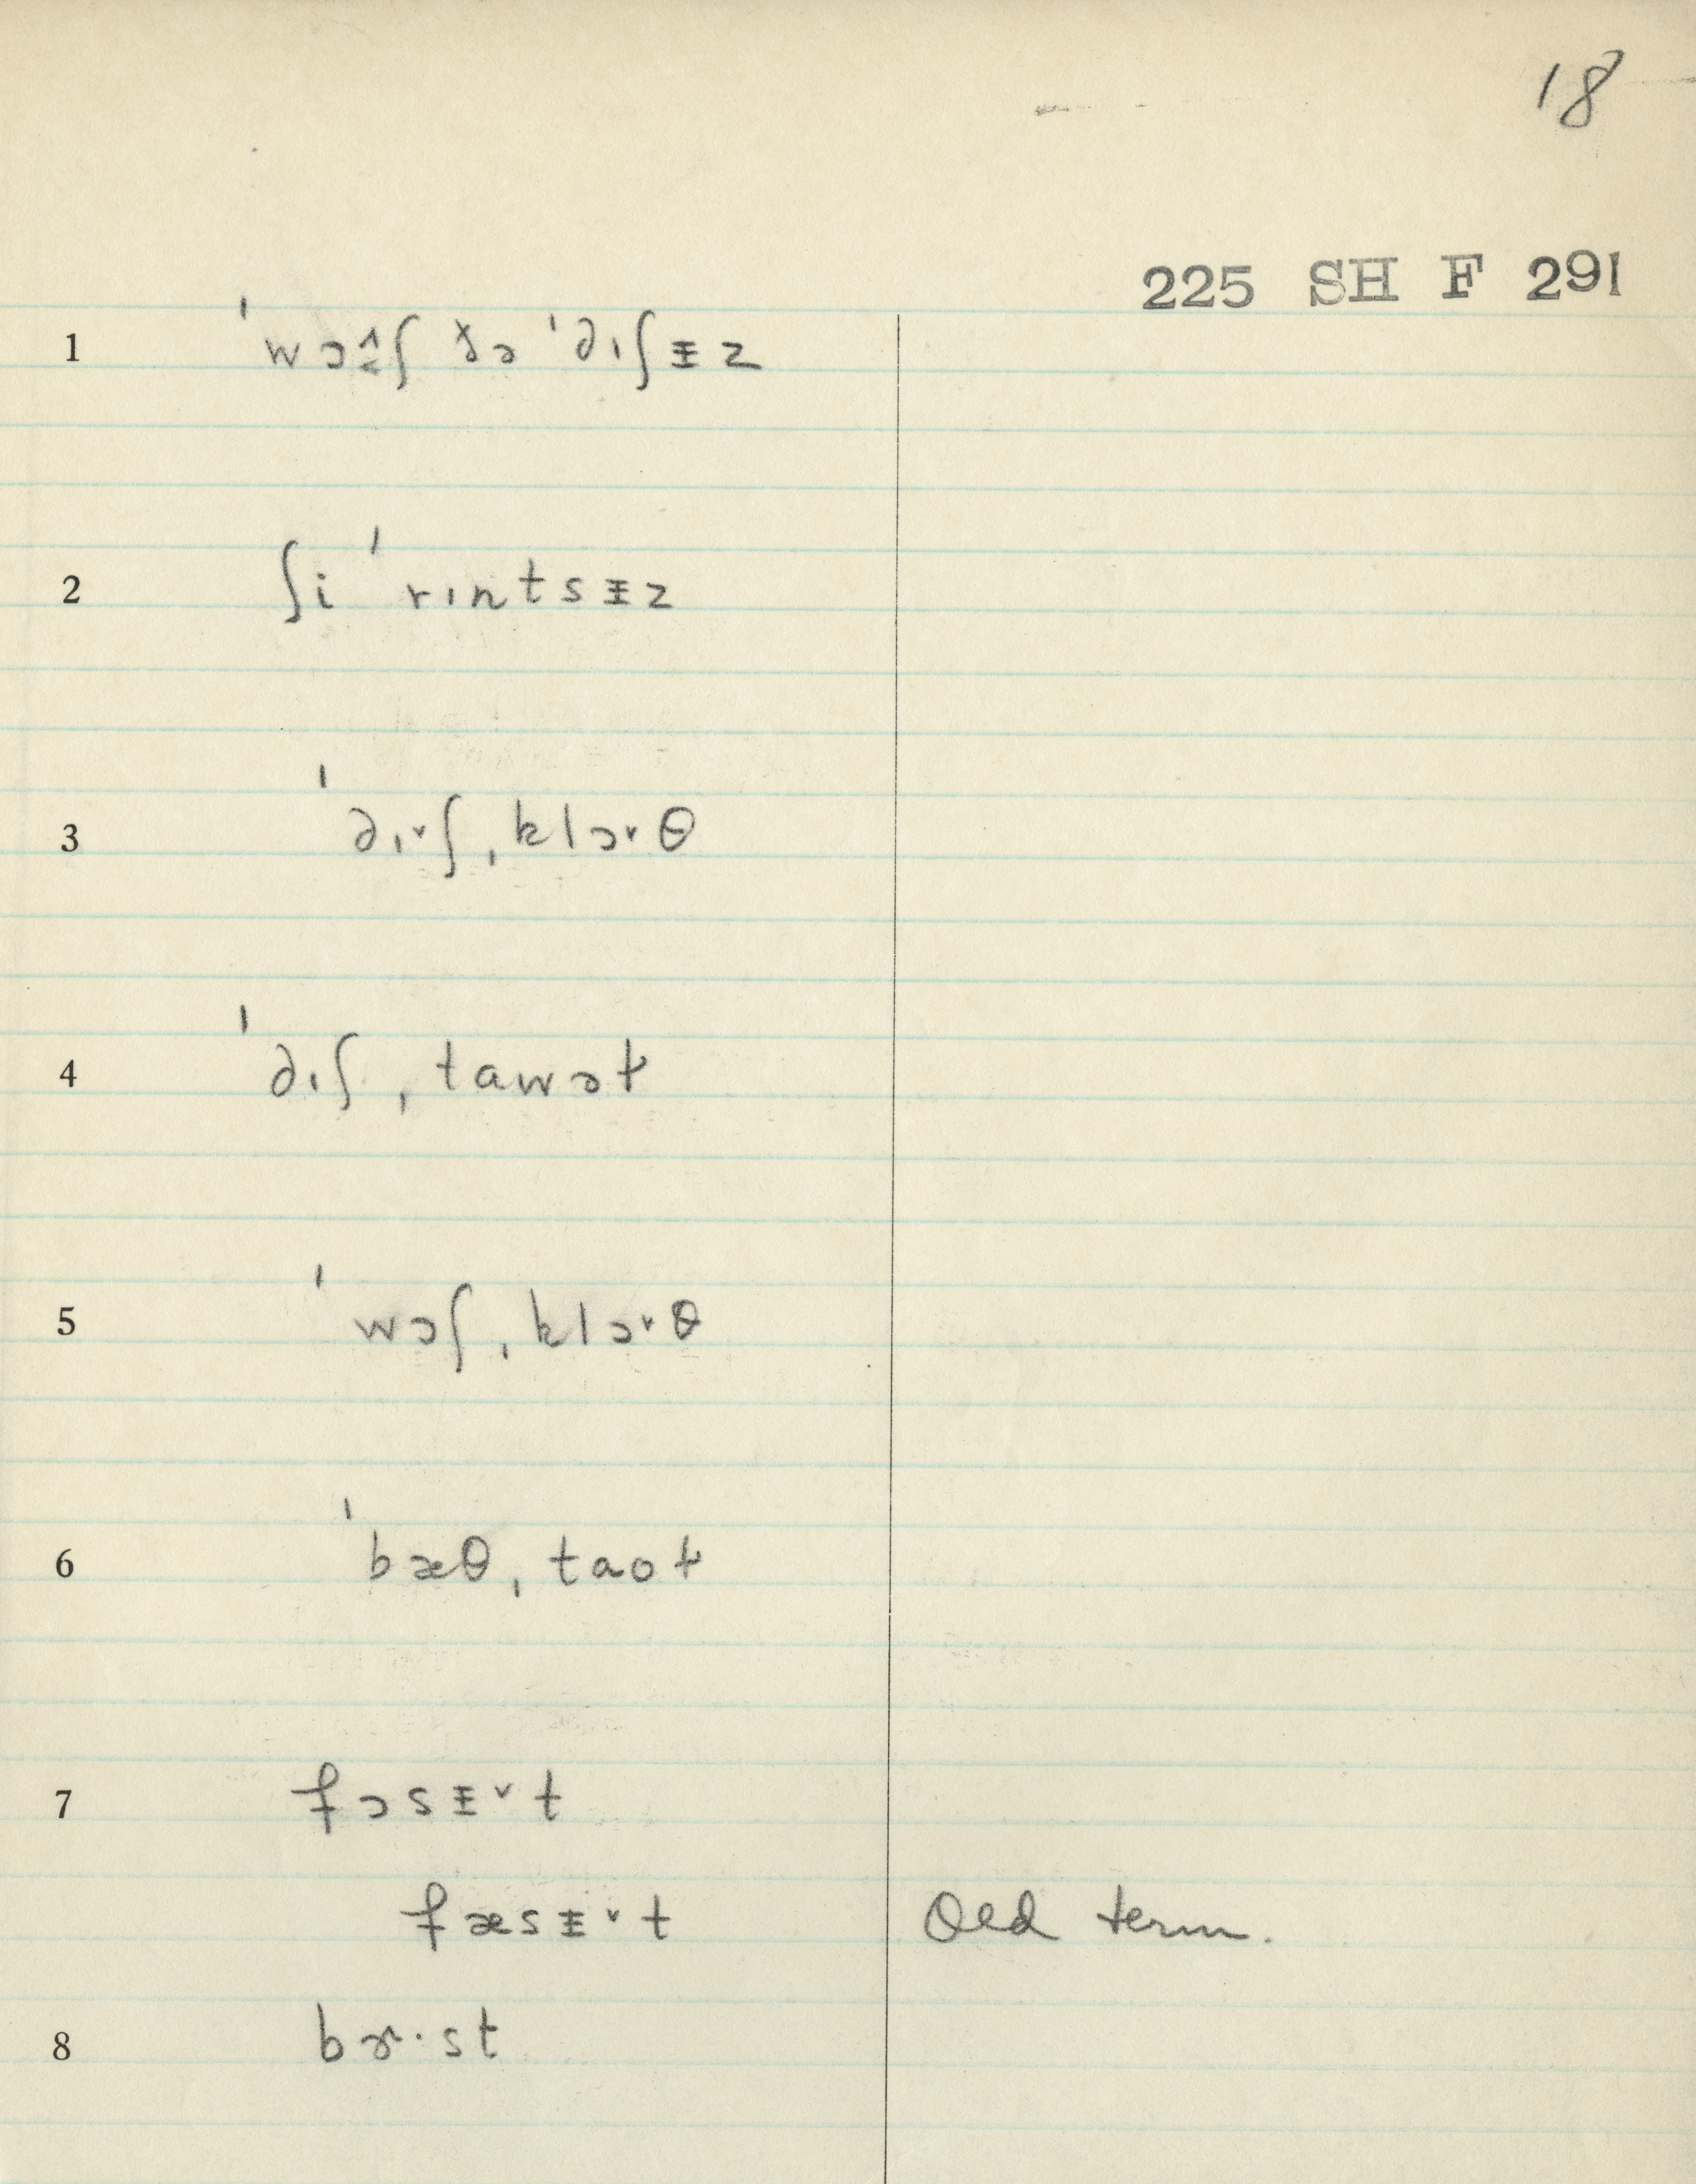 18
225 SH F 291
1 ˈwɔ˰ʃ ðə ˈdɪʃᵻz
2 ʃi ˈrɪntsᵻz
3 ˈdɪ˅ʃˌklɔ˅θ
4 ˈdɪʃˌtawəɫ
5 ˈwɔʃˌklɔ˅θ
6 ˈbæθˌtaoɫ
7 fɔsᵻ˅t
fæsᵻ˅t Old term.
8 bɝ·st